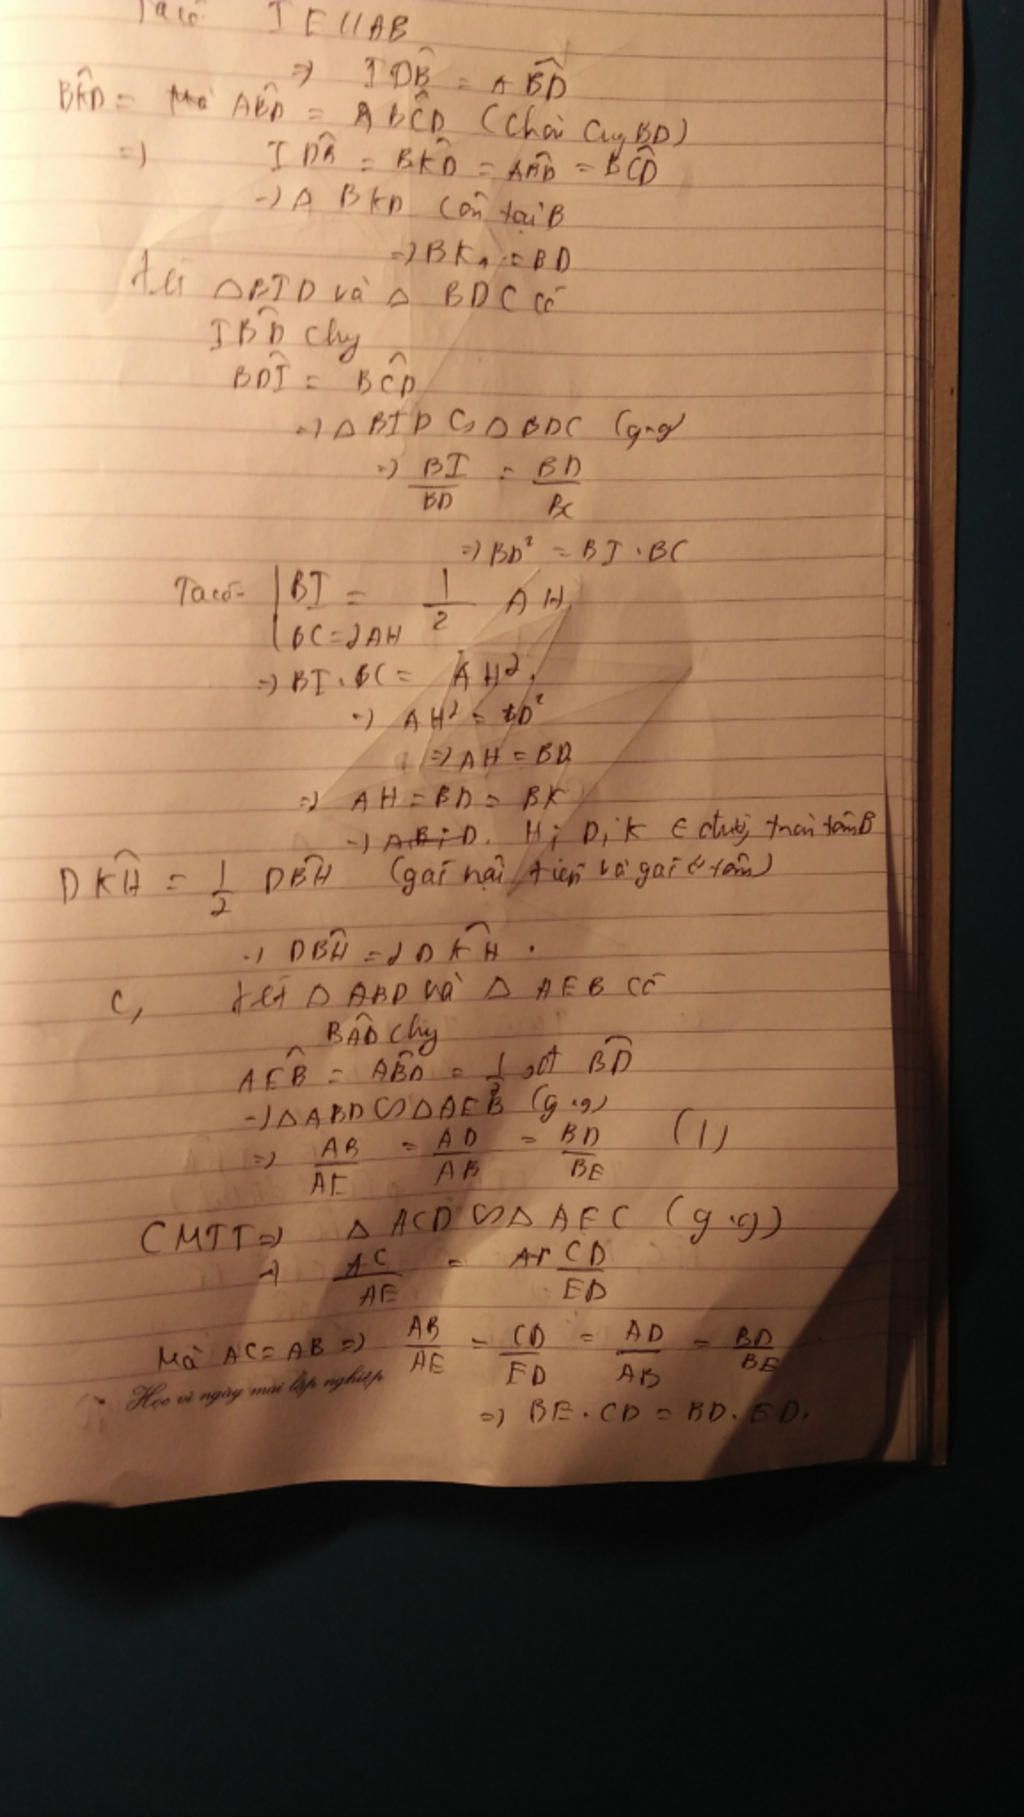 Ta có IE // AB
=> IDB̂ = ABD̂
BKD̂ = Mà ABD̂ = BCD̂ (chắn cung BD)
=) IDB̂ = BKD̂ = ABD̂ = BCD̂
=> Δ BKD cân tại B
=> BK = BD
Xét ΔBID và Δ BDC có
IBD̂ chg
BDÎ = BCD̂
=> Δ BID ∽ Δ BDC (g.g)
=> BI/BD = BD/BC
=> BD² = BI . BC
Ta có BI = 1/2 AH
BC = 2AH
=> BI . BC = AH²
=> AH² = BD²
=> AH = BD
=> AH = BD = BK
=> H; D; K ∈ đường tròn tâm B
DKĤ = 1/2 DBĤ (góc nội tiếp và góc ở tâm)
=> DBĤ = 2 DKĤ .
c, Xét Δ ABD và Δ AEB có
BAD̂ chg
AEB̂ = ABD̂ = 1/2 sđ BD̂
=> Δ ABD ∽ Δ AEB (g.g)
=> AB/AE = AD/AB = BD/BE (1)
CMTT => Δ ACD ∽ Δ AEC (g.g)
=> AC/AE = CD/ED
Mà AC = AB => AB/AE = CD/ED = AD/AB = BD/BE
Học vì ngày mai lập nghiệp
=> BE . CD = BD . ED.